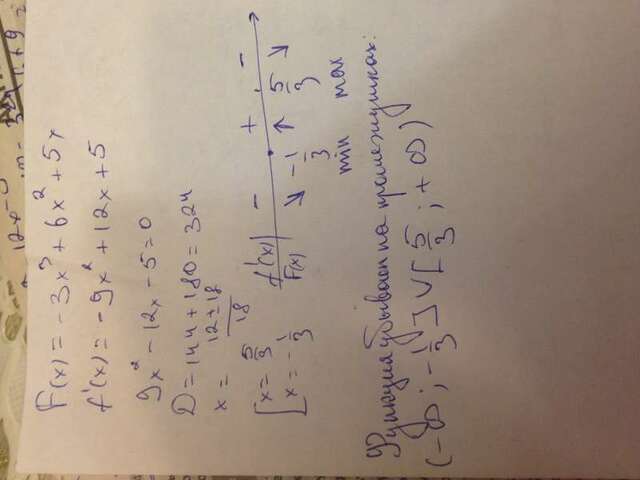 12x
F(x) = -3x³ + 6x² + 5x
f'(x) = -9x² + 12x + 5
9x² - 12x - 5 = 0
D = 144 + 180 = 324
x = (12 ± 18)/18
[x = 5/3
x = -1/3
f'(x) - + -
F(x) ↘ -1/3 ↑ 5/3 ↘
min max
Функция убывает на промежутках:
(-∞; -1/3] ∨ [5/3; +∞)